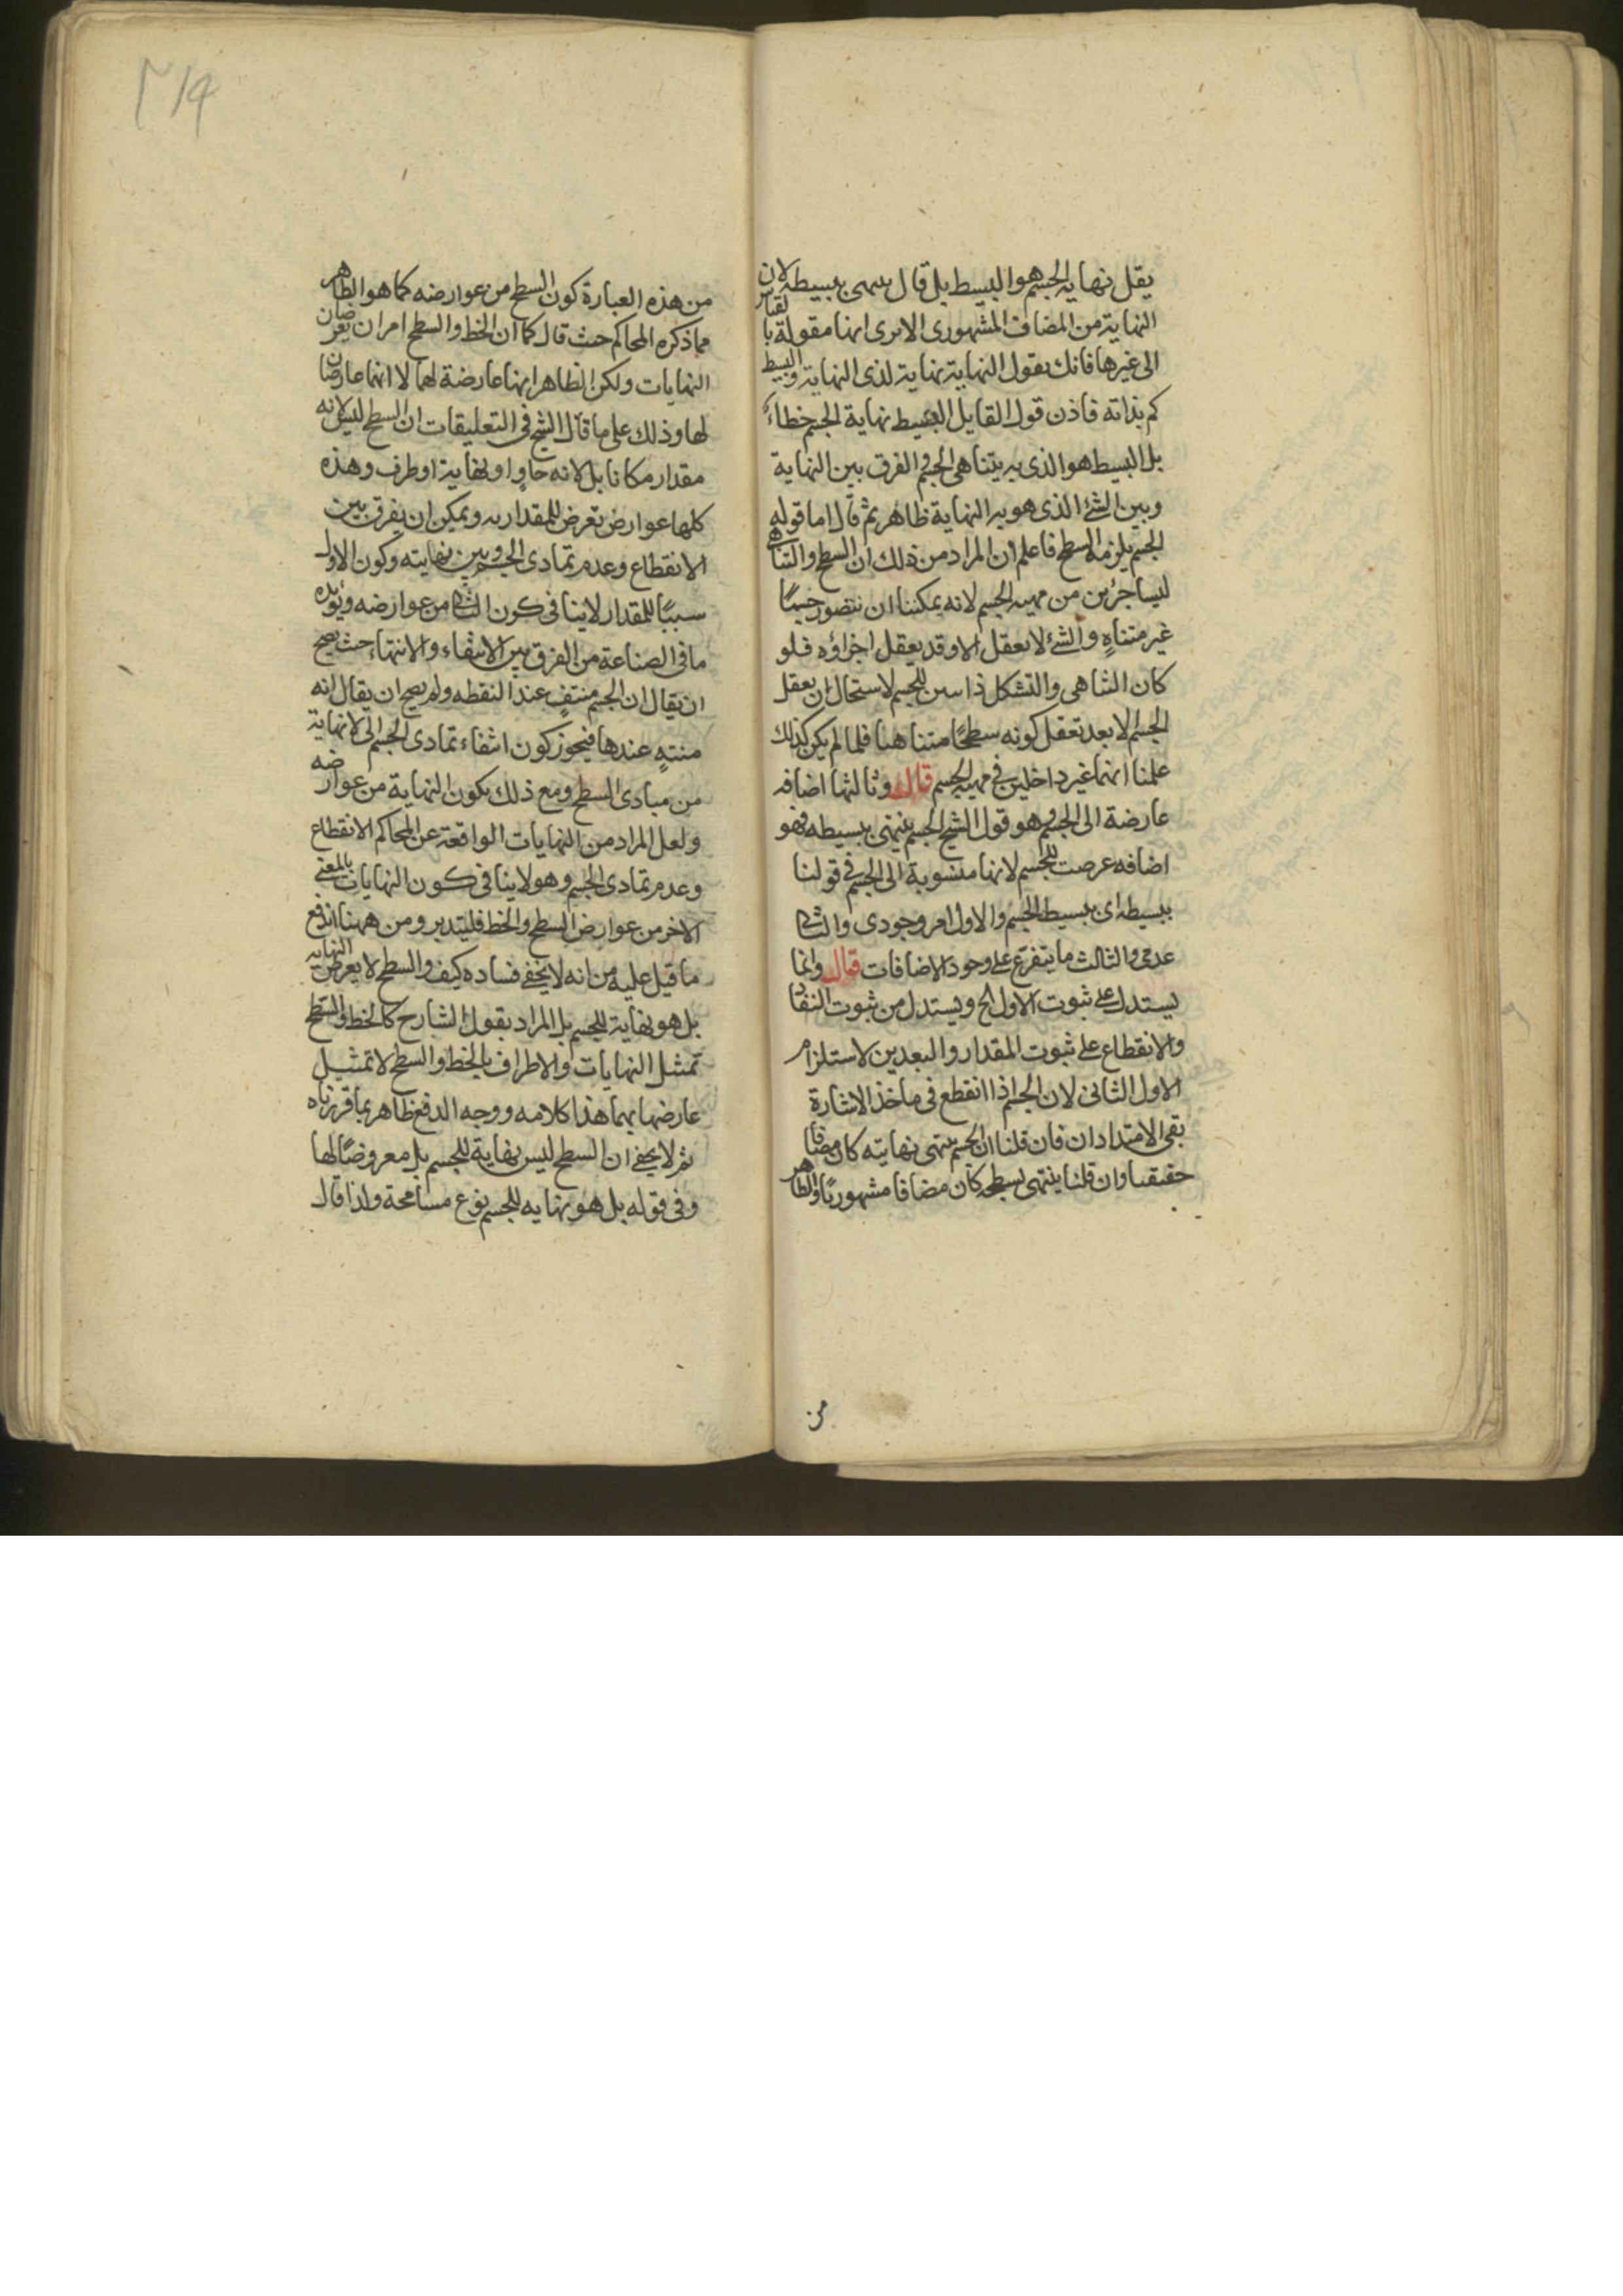 يقل نهايه الجسم هو البسيط بل قال ينتهى ببسيطه لان
النهاية من المضاف المشهورى الا يرى انها مقولة بالقياس
الى غيرها فانك تقول النهاية نهاية لذى النهاية والبسيط
كم بذاته فاذن قول القايل البسيط نهاية الجسم خطاء
بل البسيط هو الذى به يتناهى الجسم والفرق بين النهاية
وبين الشئ الذى هو به النهاية ظاهر ثم قال اما قوله
الجسم يلزمه السطح فاعلم ان المراد من ذلك ان السطح والتناهى
ليسا جزئين من مهيه الجسم لانه يمكننا ان نتصور جسمًا
غير متناهٍ والشئ لا يعقل الا وقد يعقل اجزاؤه فلو
كان التناهى والتشكل ذاتيين للجسم لاستحال ان يعقل
الجسم الا بعد تعقل كونه سطحًا متناهيا فلما لم يكن كذلك
علمنا انهما غير داخلين فى مهيه الجسم قال وثالثها اضافه
عارضة الى الجسم وهو قول الشيخ الجسم ينتهى ببسيطه فهو
اضافه عرضت للجسم لانها منسوبة الى الجسم فى قولنا
ببسيطه اى ببسيط الجسم والاول امر وجودى والثانى
عدمى والثالث ما يتفرع على وجود الاضافات قال وانما
يستدل على ثبوت الاول الخ ويستدل من ثبوت النفاد
والانقطاع على ثبوت المقدار والبعدين لاستلزام
الاول الثانى لان الجسم اذا انقطع فى ماخذ الاشارة
بقى الامتدادان فان قلنا ان الجسم ينتهى بنهايته كان مضافا
حقيقيا وان قلنا ينتهى بسطحه كان مضافا مشهوريًا والظاهر
من
٢١٩
من هذه العبارة كون السطح من عوارضه كما هو الظاهر
مما ذكره المحاكم حيث قال كما ان الخط والسطح امران يعرضان
النهايات ولكن الظاهر انها عارضة لهما لا انهما عارضان
لها وذلك على ما قال الشيخ فى التعليقات ان السطح ليس لانه
مقدار مكانا بل لانه حاوٍ او نهاية او طرف وهذه
كلها عوارض تعرض للمقدار به ويمكن ان يفرق بين
الانقطاع وعدم تمادى الجسم وبين نهايته وكون الاول
سببًا للمقدار لا ينافى كون الثانى من عوارضه ويؤيده
ما فى الصناعة من الفرق بين الانتفاء والانتهاء حيث يصح
ان يقال ان الجسم منتفٍ عند النقطه ولم يصح ان يقال انه
منتهٍ عندها فيجوز كون انتفاء تمادى الجسم الى لا نهاية
من مبادى السطح ومع ذلك يكون النهاية من عوارضه
ولعل المراد من النهايات الواقعة عن المحاكم الانقطاع
وعدم تمادى الجسم وهو لا ينافى كون النهايات بالمعنى
الاخر من عوارض السطح والخط فليتدبر ومن ههنا اندفع
ما قيل عليه من انه لا يخفى فساده كيف والسطح لا يعرض النهايه
بل هو نهاية للجسم بل المراد بقول الشارح كالخط والسطح
تمثيل النهايات والاطراف بالخط والسطح لا تمثيل
عارضها بهما هذا كلامه ووجه الدفع ظاهر بما قررناه
ثم لا يخفى ان السطح ليس نهاية للجسم بل معروضًا لها
وفى قوله بل هو نهايه للجسم نوع مسامحة ولذا قال